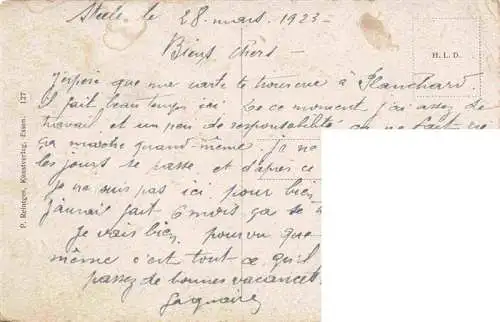 Steele, le 28 mars 1923 -
Biens chers -
J'espère que ma carte te trouveue à Planchard
il fait beau temps ici. Ce ce moment, j'ai assez de
travail et un peu de responsabilité on ne fait
ça marche quand-même. Je ne
les jours se passe, et d'après ce
Je ne suis pas ici pour bien
j'aurai fait 6 mois ça se
Je vais bien, pourvu que
même c'est tout ce qu'il
passez de bonnes vacances
H. L. D.
P. Reintges, Kunstverlag, Essen. 127